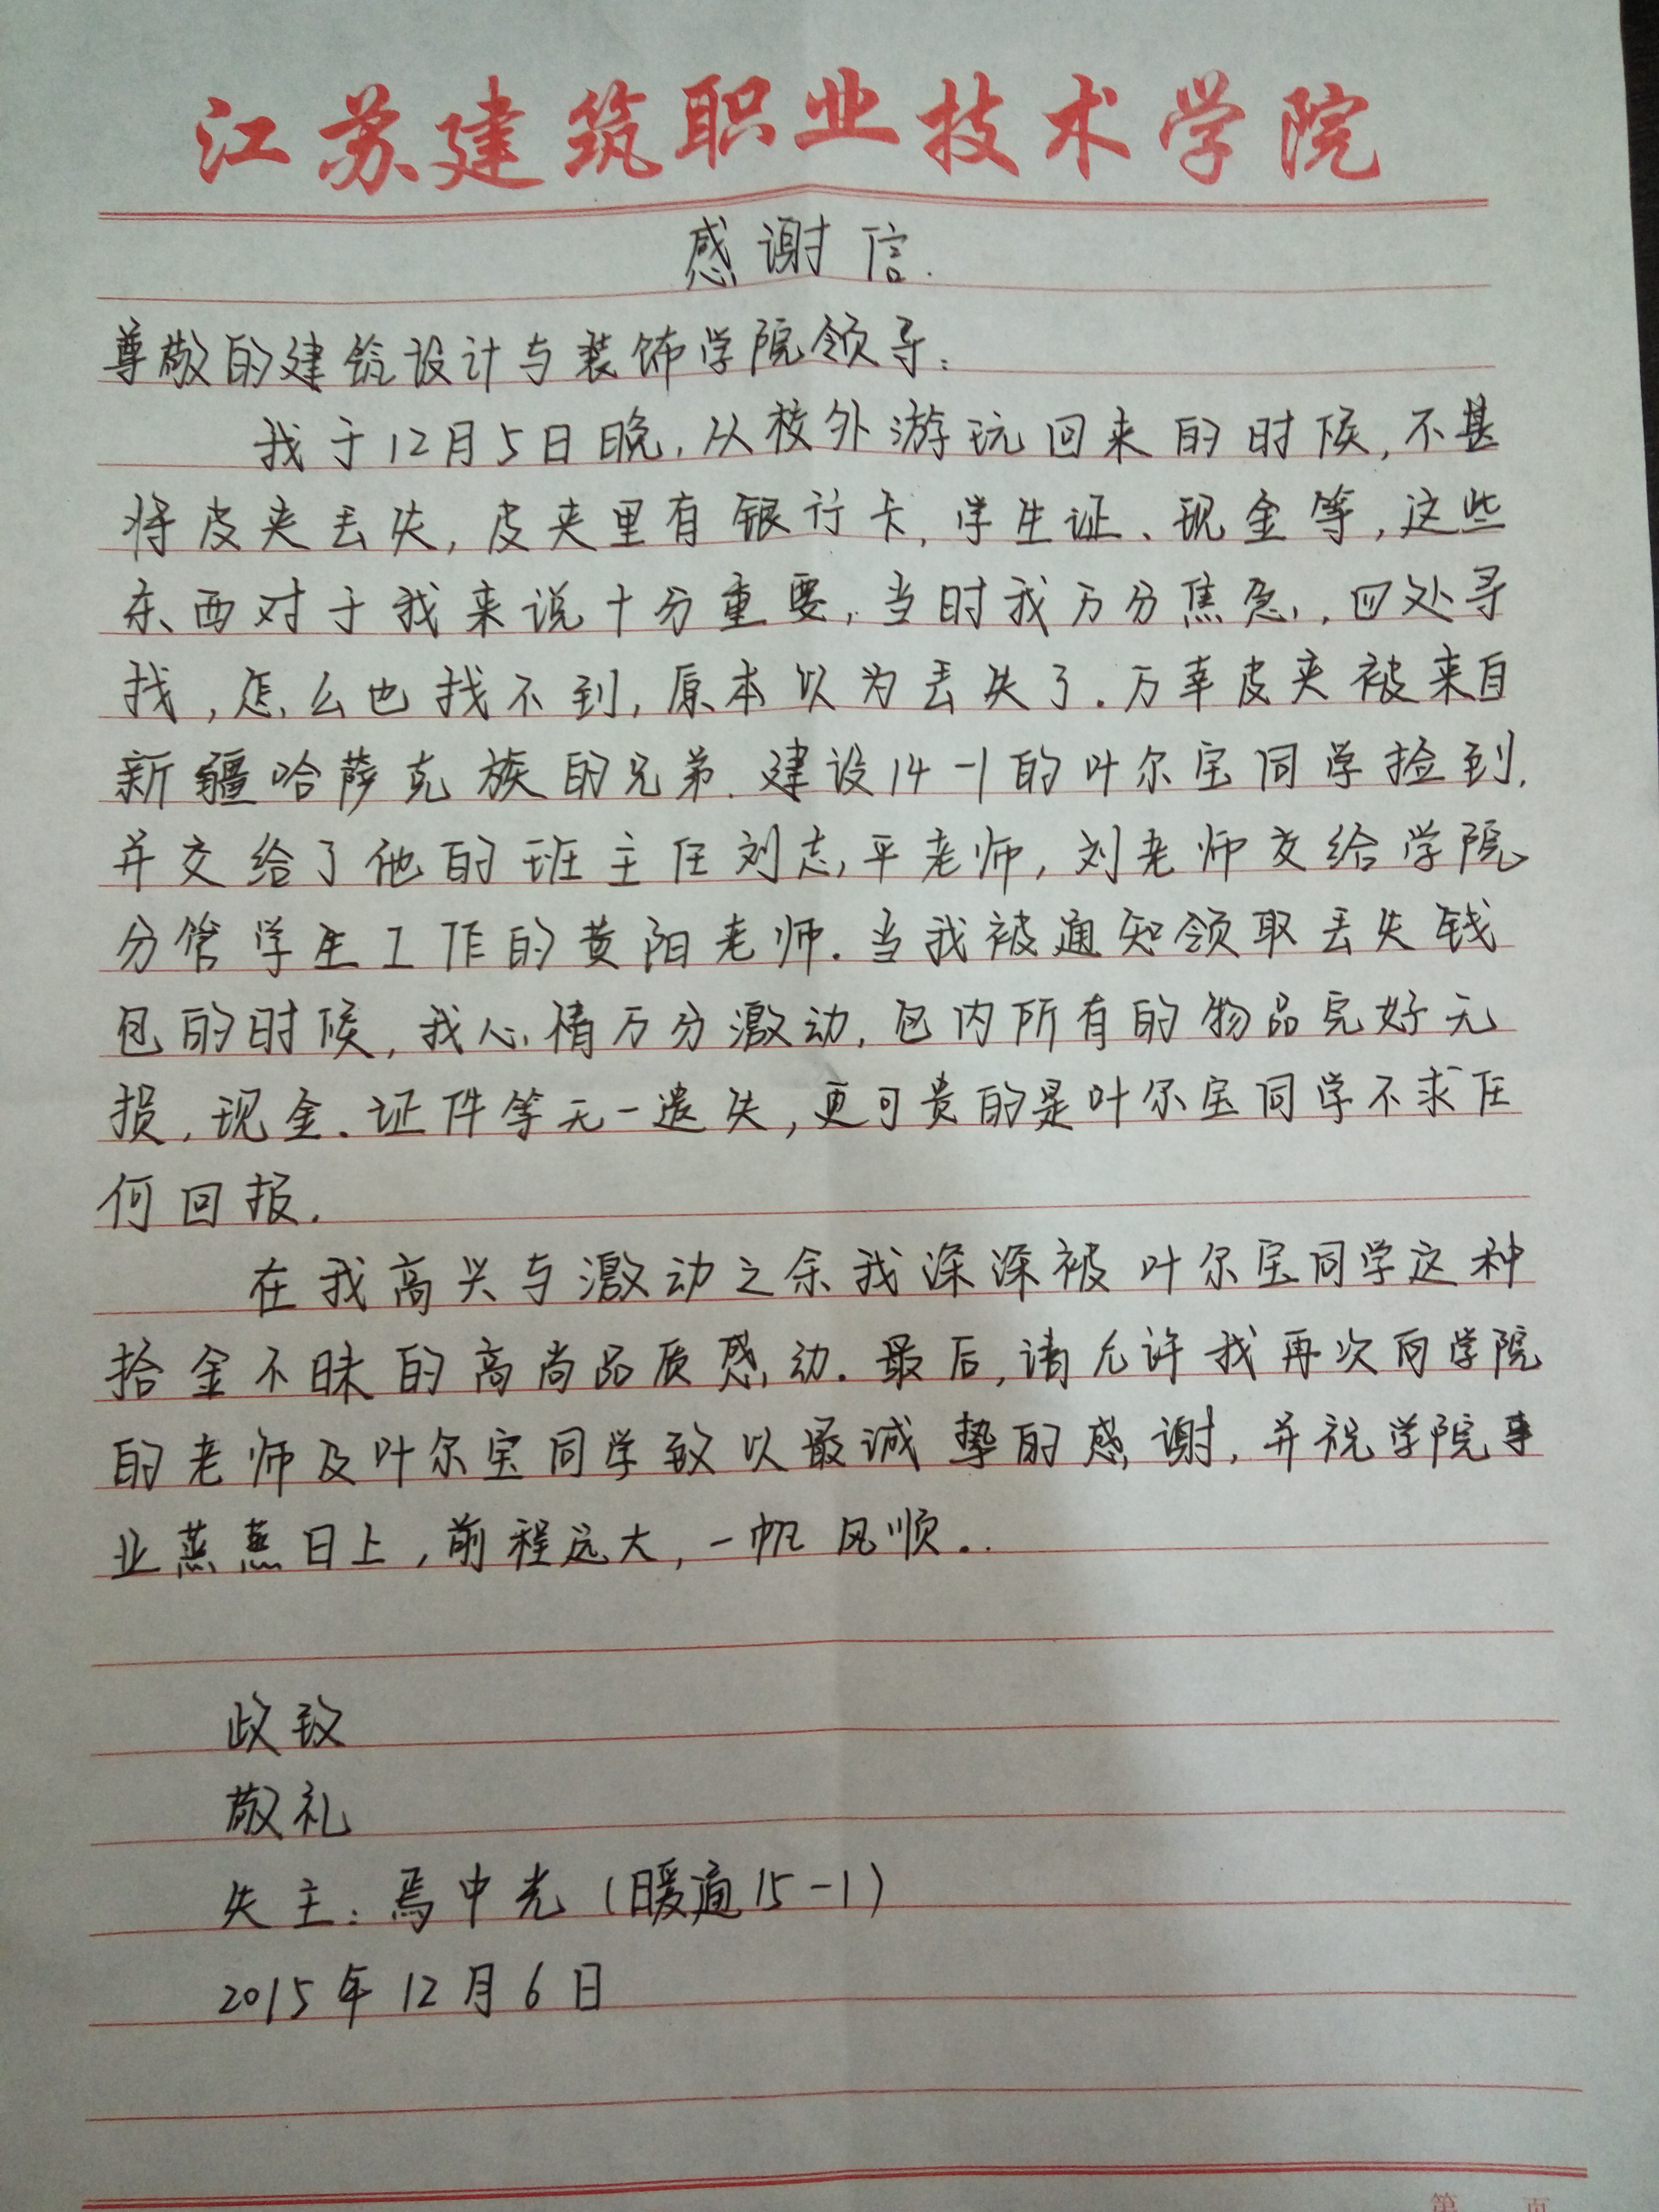 江苏建筑职业技术学院
感谢信.
尊敬的建筑设计与装饰学院领导:
我于12月5日晚,从校外游玩回来的时候,不甚
将皮夹丢失,皮夹里有银行卡、学生证、现金等,这些
东西对于我来说十分重要,当时我万分焦急,,四处寻
找,怎么也找不到,原本以为丢失了.万幸皮夹被来自
新疆哈萨克族的兄弟.建设14-1的叶尔宝同学捡到,
并交给了他的班主任刘志平老师,刘老师交给学院
分管学生工作的黄阳老师.当我被通知领取丢失钱
包的时候,我心情万分激动,包内所有的物品完好无
损,现金、证件等无一遗失,更可贵的是叶尔宝同学不求任
何回报.
在我高兴与激动之余我深深被叶尔宝同学这种
拾金不昧的高尚品质感动.最后,请允许我再次向学院
的老师及叶尔宝同学致以最诚挚的感谢,并祝学院事
业蒸蒸日上,前程远大,一帆风顺..
致
敬礼
失主:焉中光(暖通15-1)
2015年12月6日
第 页